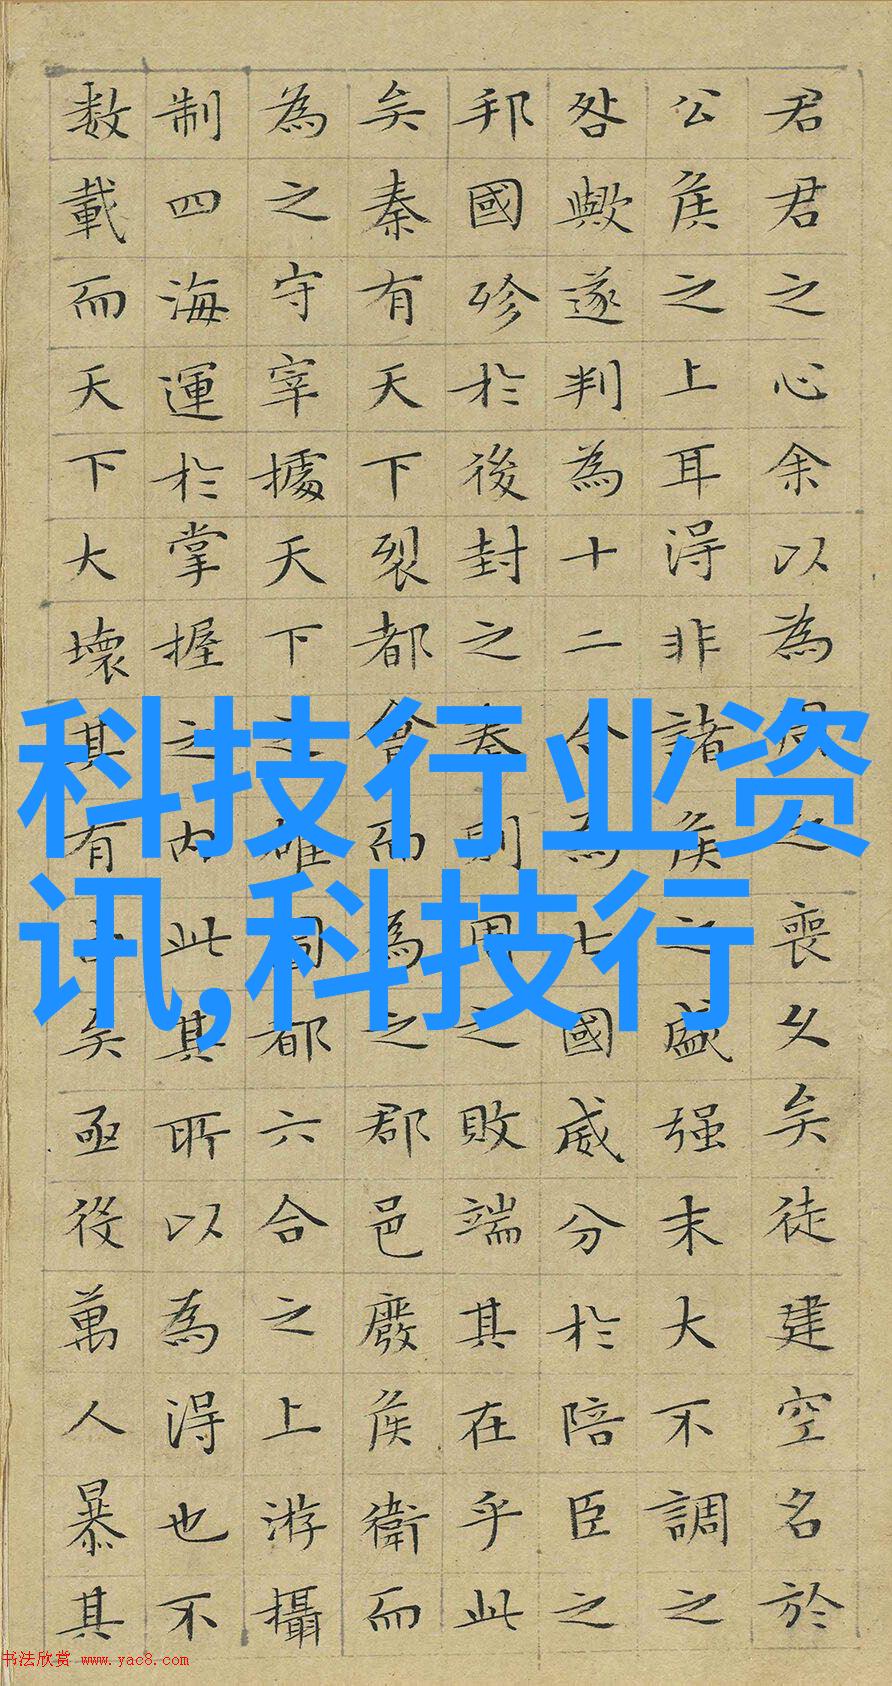 君君之心余以為周之喪久矣徒建空名於
公侯之上耳得非諸侯之盛强末大不調之
咎歟遂判為十二合為七國威分於陪臣之
邦國殄於後封之秦則周之敗端其在乎此
矣秦有天下裂都會而為之郡邑廢侯衛而
為之守宰據天下之雄圖都六合之上游攝
制四海運於掌握之内此其所以為得也不
数載而天下大壞其有矣亟役萬人暴其
科技行业资
讯,科技行
书法欣赏 www.yac8.com